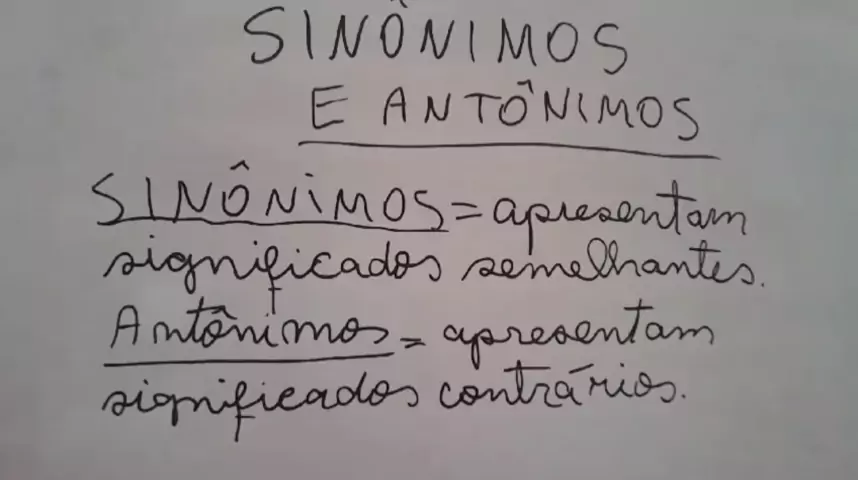 SINÔNIMOS
E ANTÔNIMOS
SINÔNIMOS = apresentam
significados semelhantes.
Antônimos = apresentam
significados contrários.